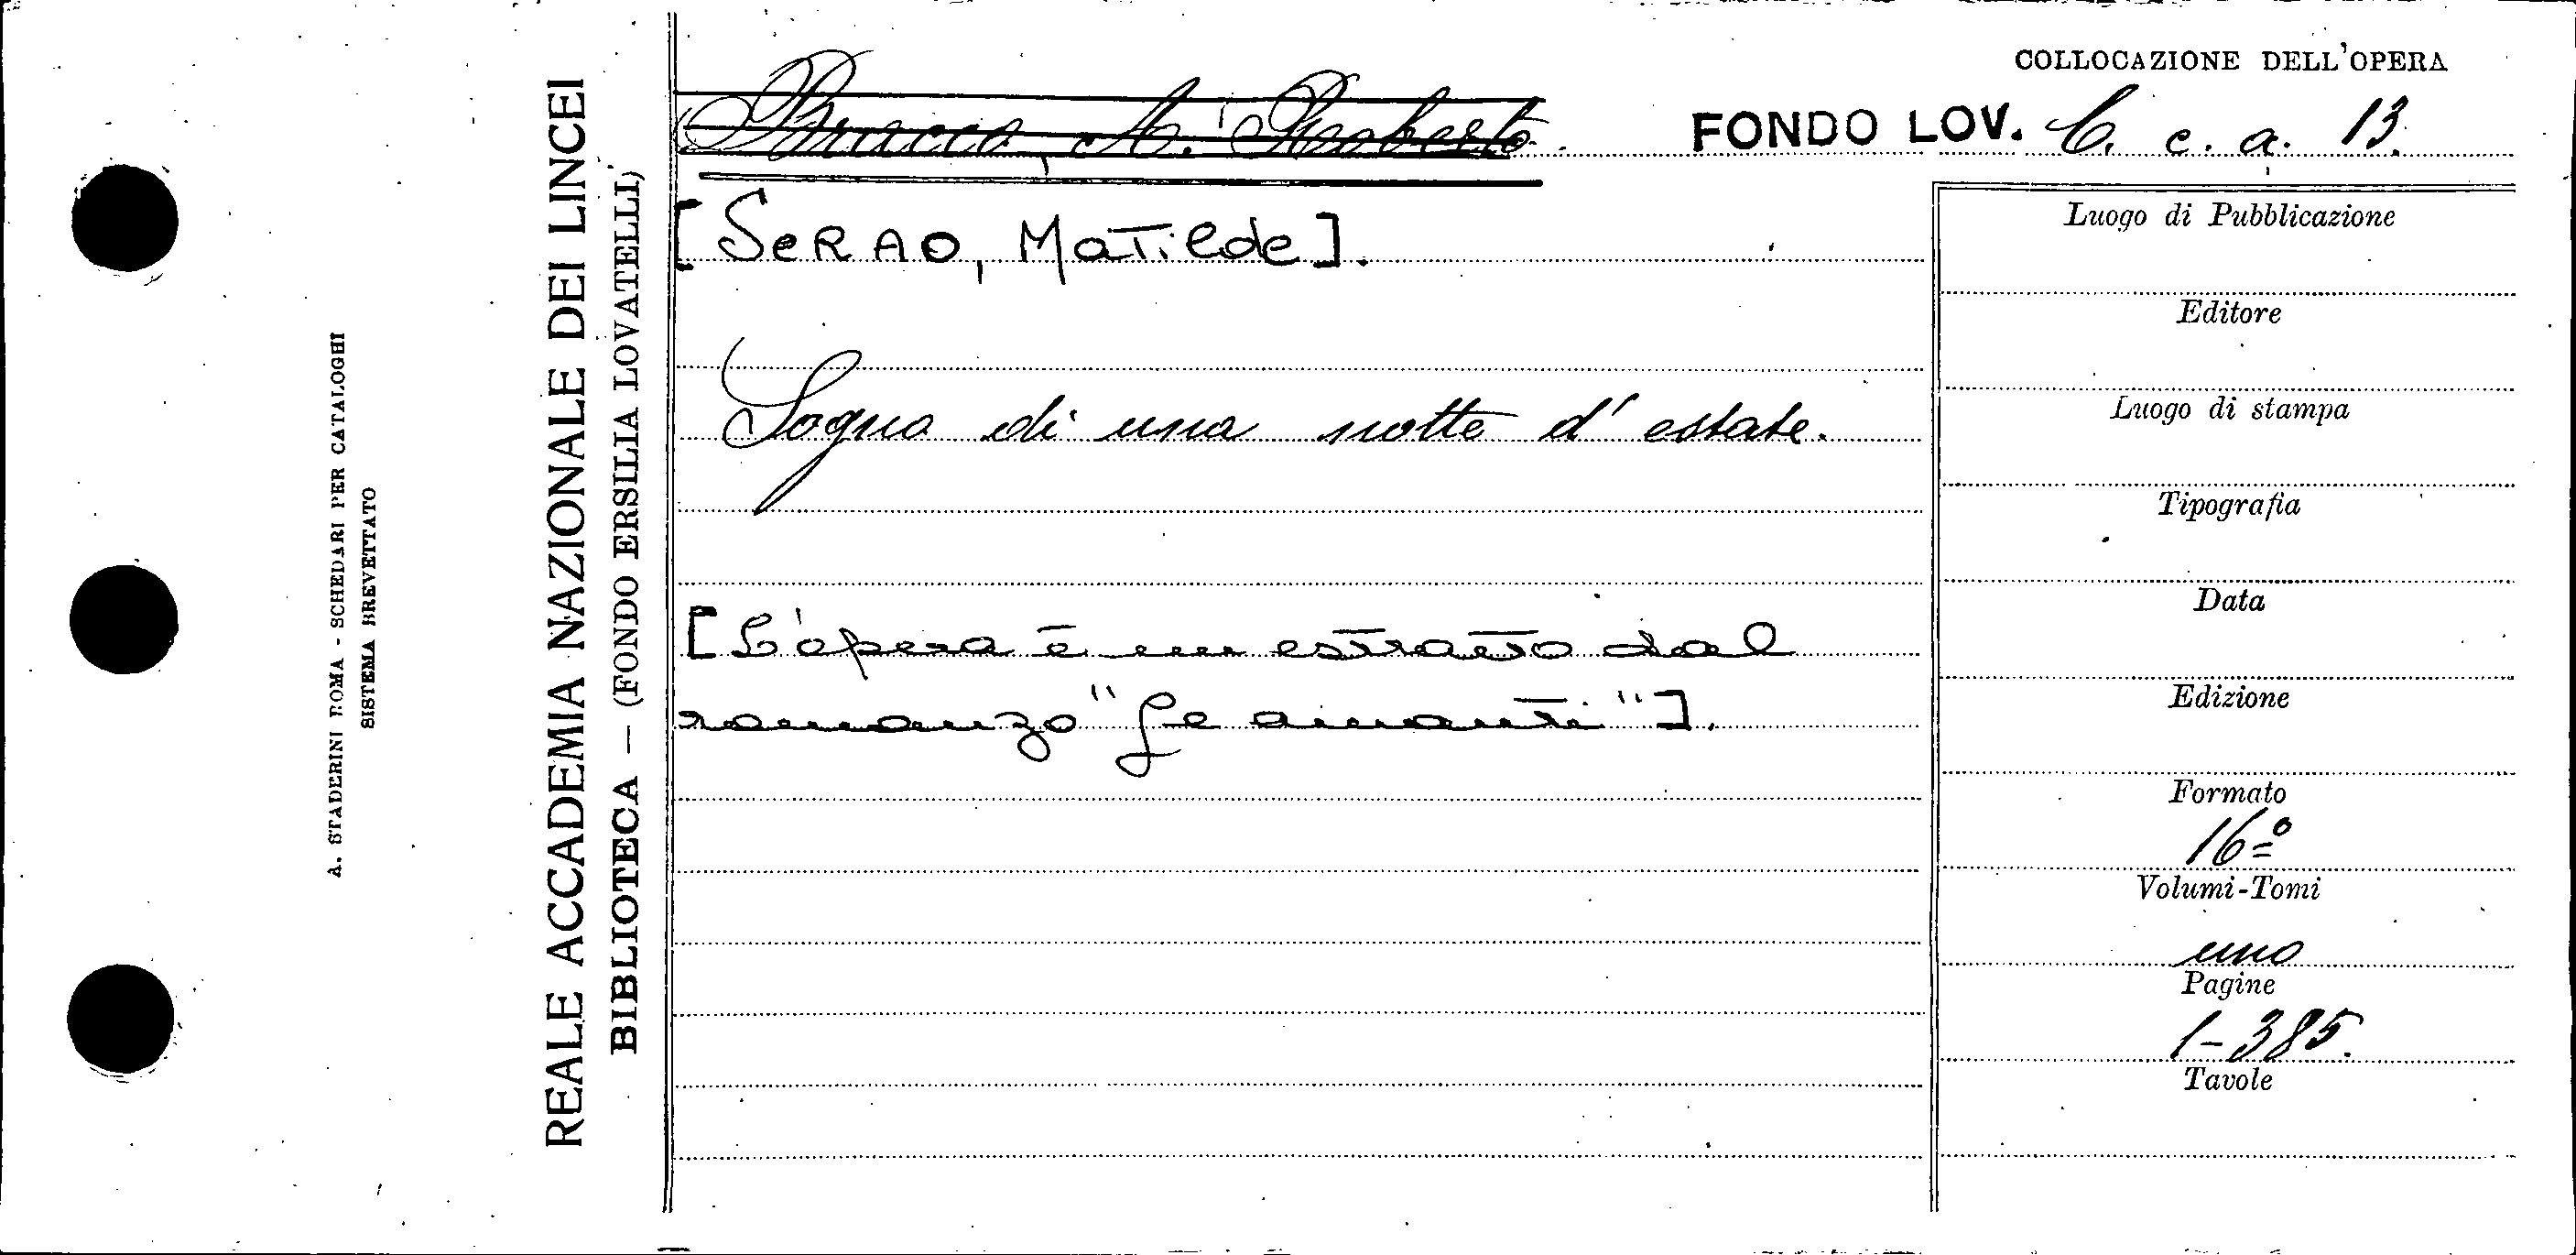 COLLOCAZIONE DELL'OPERA
Bracco, A. Roberto.
FONDO LOV. C. c. a. 13.
[SERAO, Matilde].
Sogno di una notte d'estate.
[L'opera è un estratto dal
romanzo "Le amanti"].
Luogo di Pubblicazione
Editore
Luogo di stampa
Tipografia
Data
Edizione
Formato
16º
Volumi-Tomi
uno
Pagine
1-385.
Tavole
REALE ACCADEMIA NAZIONALE DEI LINCEI
BIBLIOTECA — (FONDO ERSILIA LOVATELLI)
A. STADERINI ROMA - SCHEDARI PER CATALOGHI
SISTEMA BREVETTATO